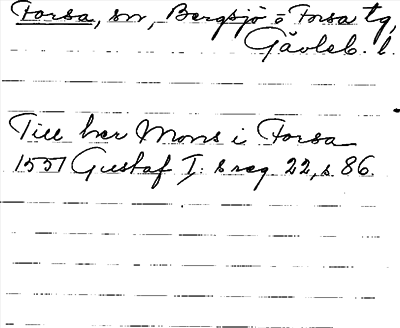 Forsa, sn, Bergsjö o Forsa tg,
Gävleb. l.
Till her Mons i Forsa
1551 Gustaf I: s reg 22, s 86.